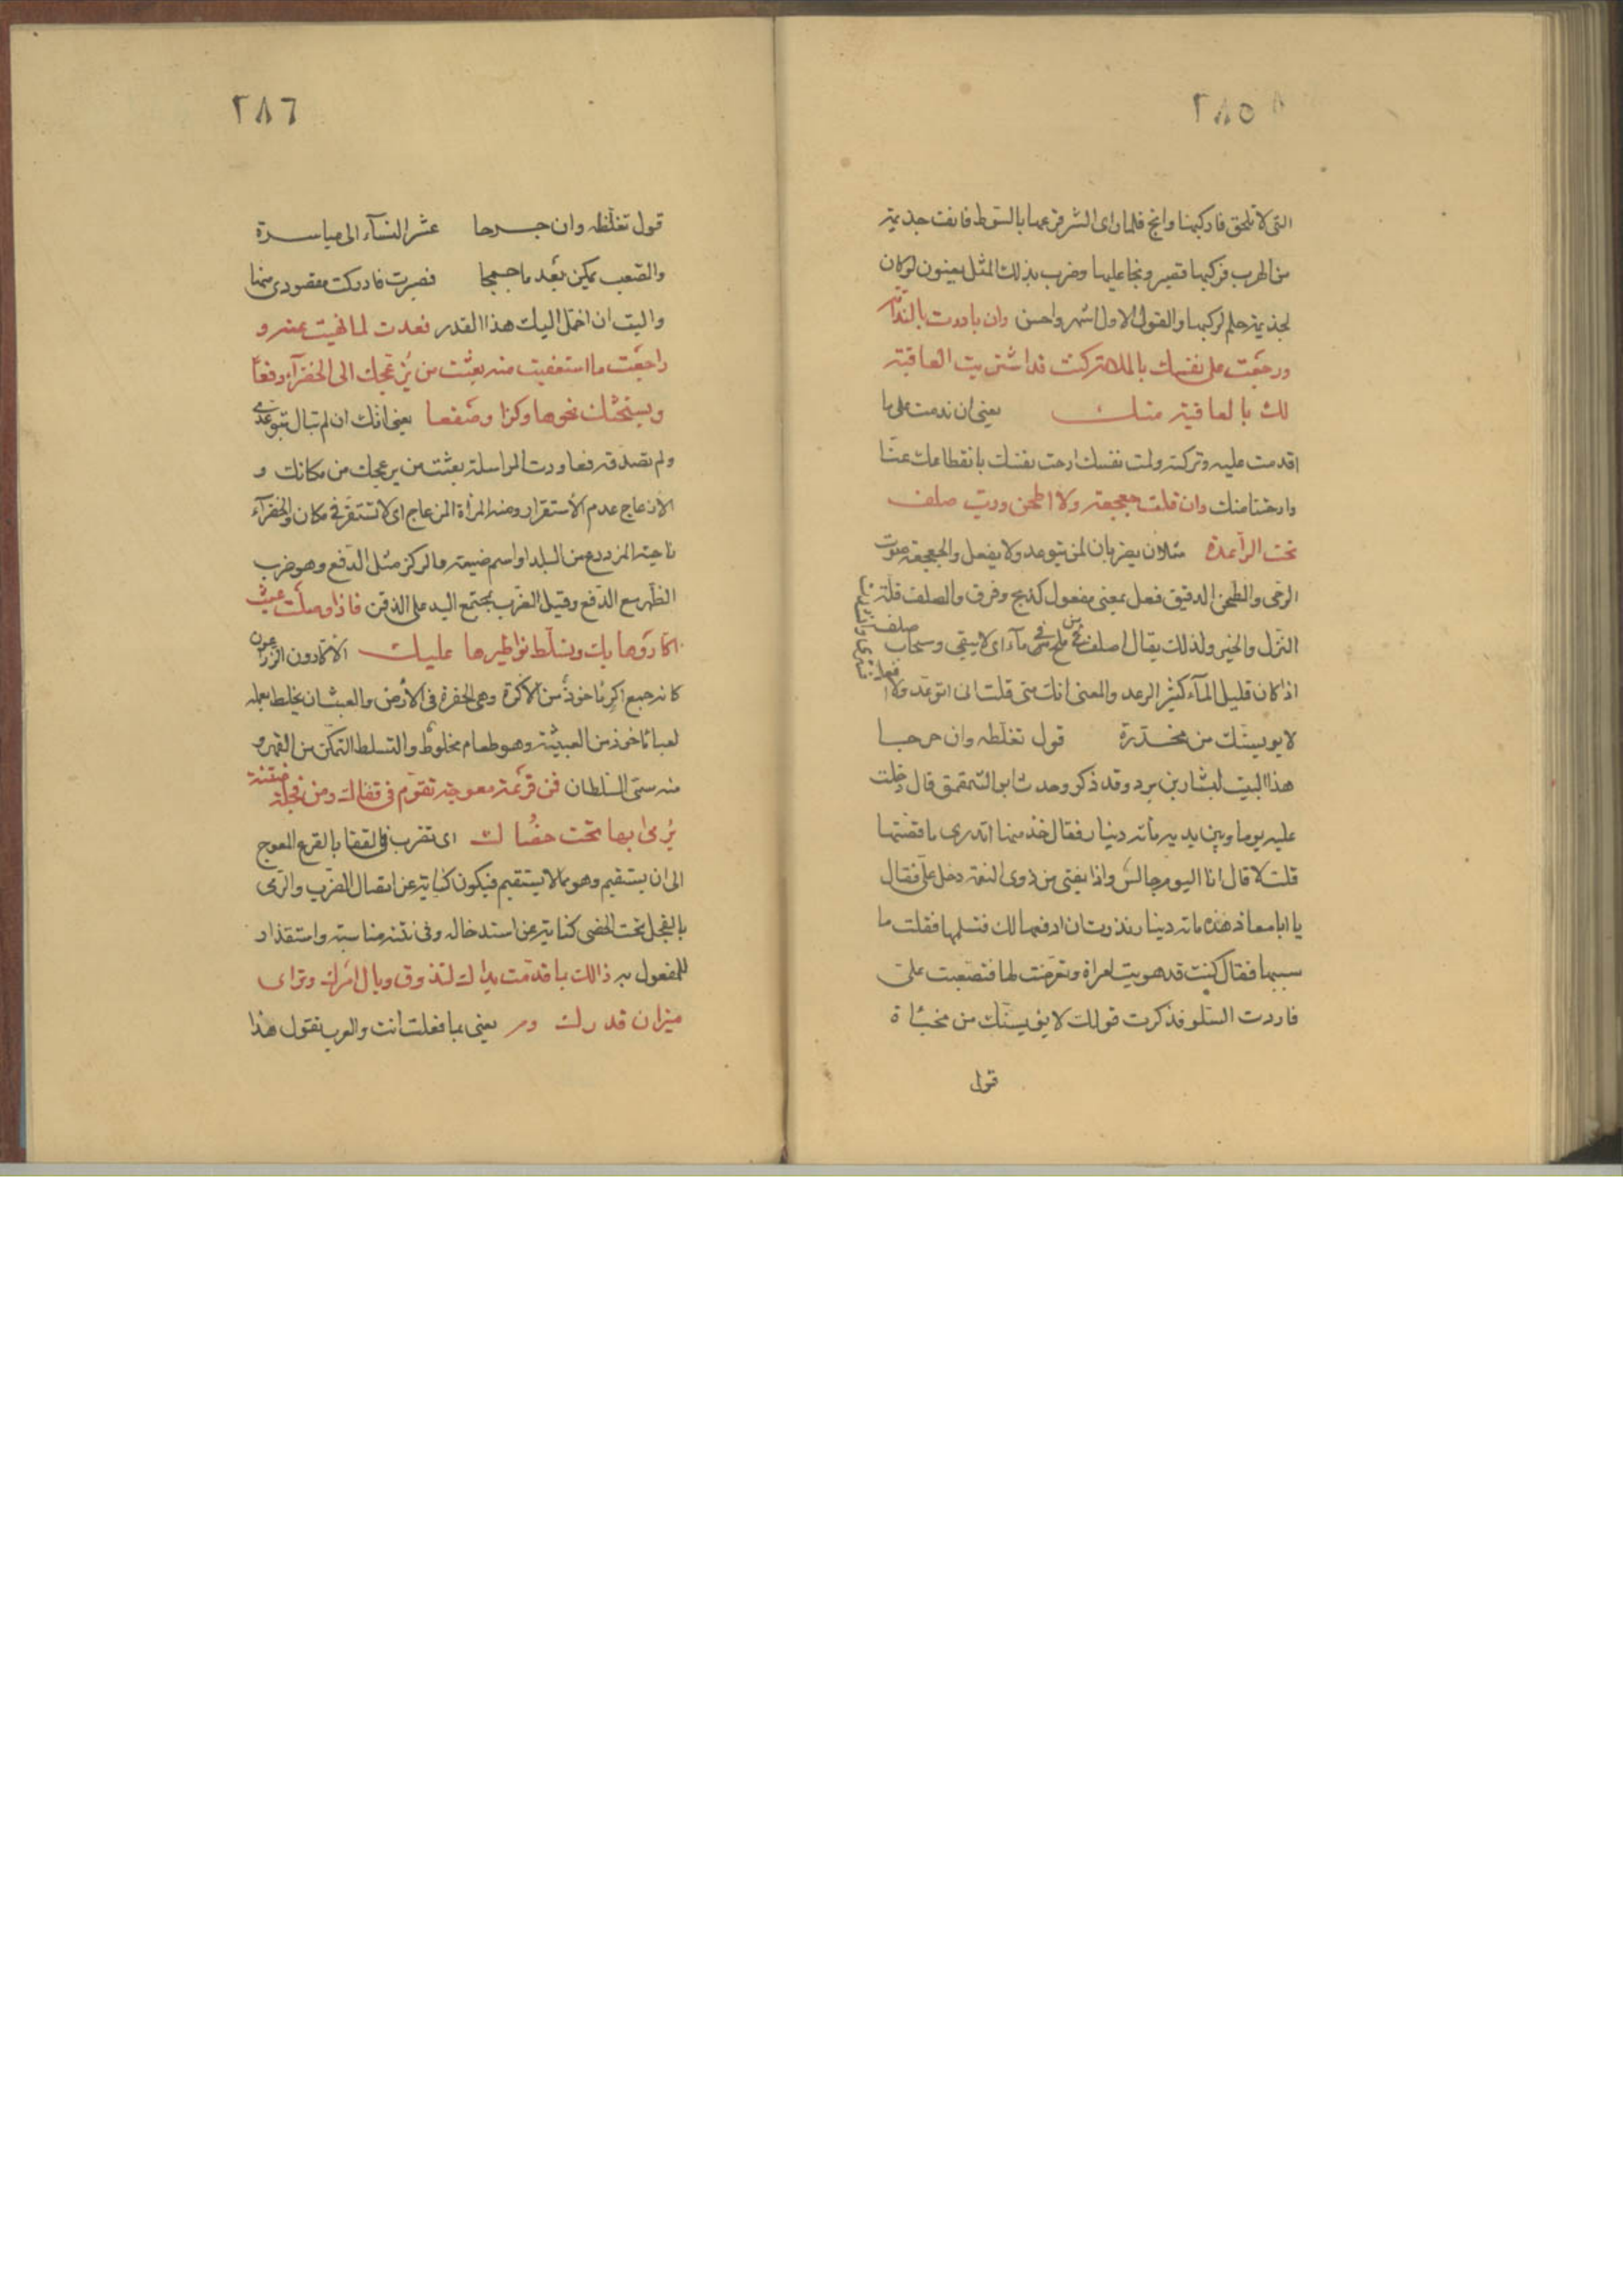 ٢٨٥
التى لا تلحق فاركبها وانج فلما راى الشر قرعها بالسوط فانفت جذيمة
من الهرب فركبها قصير ونجا عليها وضرب بذلك المثل يعنون لو كان
لجذيمة حلم لركبها والقول الاول اشهر واحسن وان بادرت بالندامة
ورجعت على نفسك بالملامة كنت قد اشتريت العافية
لك بالعافية منك يعنى ان ندمت على ما
اقدمت عليه وتركته ولمت نفسك ارحت نفسك بانقطاعك عنا
وارحتنا منك وان قلت جعجعة ولا اطحن ورب صلف
تحت الراعدة مثلان يضربان لمن يتوعد ولا يفعل والجعجعة صوت
الرحى والطحن الدقيق فعل بمعنى مفعول كذبح وفرق والصلف قلة
النزل والخير ولذلك يقال اصلف من ملح فى ماء اى لا يبقى وسحاب صلف
اذا كان قليل الماء كثير الرعد والمعنى انك متى قلت انى اتوعد ولا افعل
لا يويسنك من مخدرة قول تغلظه وان جرحا
هذا البيت لبشار بن برد وقد ذكر وحدث ابو الشمقمق قال دخلت
عليه يوما وبين يديه مائة دينار فقال خذ منها اتدرى ما قصتها
قلت لا قال انا اليوم جالس واذا بفتى من ذوى النعمة دخل على فقال
يا ابا معاذ هذه مائة دينار نذرت ان ادفعها لك فتسلمها فقلت ما
سببها فقال كنت قد هويت امراة وتعرضت لها فتصعبت على
فاردت السلو فذكرت قولك لا يؤيسنك من مخباة
قول
٢٨٦
قول تغلظه وان جرحا عشر النساء الى مياسرة
والصعب يمكن بعد ما جمحا فصبرت فادركت مقصودى منها
واليت ان احمل اليك هذا القدر فعدت لما نهيت عنه و
راجعت ما استعفيت منه بعثت من يزعجك الى الخضراء دفعا
ويستحثك نحوها وكزا وصفعا يعنى انك ان لم تبال بتوعدى
ولم تصدقه فعاودت المراسلة بعثت من يزعجك من مكانك و
الازعاج عدم الاستقرار ومنه المرأة المزعاج اى لا تستقر فى مكان والخضراء
ناحية المزدرع من البلد او اسم ضيعة والركز مثل الدفع وهو ضرب
الظهر مع الدفع وقيل الضرب بجتمع اليد على الذقن فاذا وصلت عبث
اكاروها بك وتسلط نواطيرها عليك الاكارون الزراعون
كانه جمع اكر ماخوذ من الاكرة وهى الحفرة فى الارض والعبث ان يخلط بعمله
لعبا ماخوذ من العبيثة وهو طعام مخلوط والتسلط التمكن من القهر و
منه سمى السلطان فمن قرعة معوجة تقوم فى قفاك ومن فجلة منتنة
يرمى بها تحت خصاك اى تضرب فى القفا بالقرع المعوج
الى ان يستقيم وهو مما لا يستقيم فيكون كناية عن اتصال الضرب والرمى
بالفجل تحت الخصى كناية عن استدخاله وفى نتنه مناسبة واستقذار
للمفعول به ذالك بما قدمت يداك لتذوق وبال امرك وترى
ميزان قدرك يعنى بما فعلت انت والعرب تقول هذا